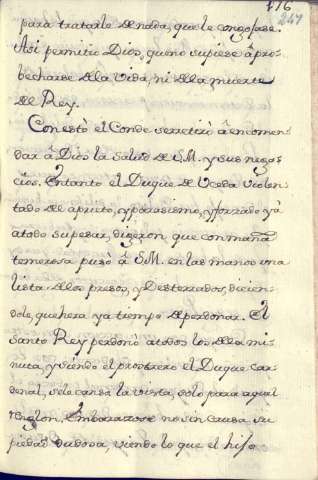 176
247
para tratarle de nada, que le congojase.
Asi permitio Dios, que no supiese apro-
becharse de la vida, ni de la muerte
del Rey.
Con esto el Conde se retirò â encomen
dar â Dios la salud de S.M. y sus nego
cios. Entanto el Duque de Uceda violen
tado de aprieto, y parasismo, y forzado yà
atodo su pesar, dizeron que con maña
temerosa pusò â S.M. en las manos una
lista de los presos, y Desterrados, dicien
dole, que hera ya tiempo de perdonar. El
Santo Rey perdonò atodos los de la mi-
nuta, y viendo el postrero el Duque Car
denal, se le cansò la vista, solo para aquel
renglon. Embarazose no sin causa su
piedad dudosa, viendo lo que el hijo